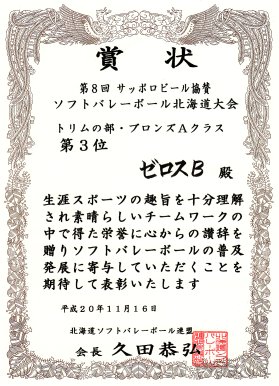 賞状
第8回 サッポロビール協賛
ソフトバレーボール北海道大会
トリムの部・ブロンズAクラス
第3位
ゼロスB 殿
生涯スポーツの趣旨を十分理解
され素晴らしいチームワークの
中で得た栄誉に心からの讃辞を
贈りソフトバレーボールの普及
発展に寄与していただくことを
期待して表彰いたします
平成20年11月16日
北海道ソフトバレーボール連盟
会長 久田恭弘